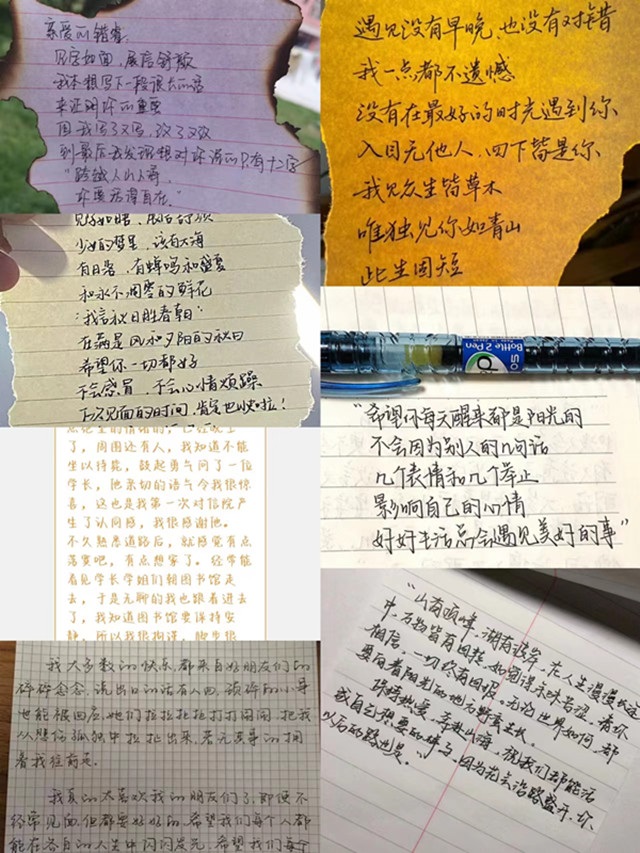 亲爱的错錯:
见字如面,展信舒颜
我本想写下一段很长的话
来证明你的重要
用我写了又写,改了又改
到最后我发现想对你说的只有十二字
"跨越人山人海,
你要活得自在."
见字如晤,展信舒颜
少女的梦里,该有大海
有日落,有蝉鸣和盛夏
和永不凋零的鲜花
"我言秋日胜春朝"
在满是风和夕阳的秋日
希望你一切都好
不会感冒,不会心情烦躁
下次见面的时间,肯定也快啦!
了,周围还有人,我知道不能
坐以待毙,鼓起勇气问了一位
学长,他亲切的语气令我很惊
喜,这也是我第一次对信院产
生了认同感,我很感谢他。
不久熟悉道路后,就感觉有点
落寞吧,有点想家了。经常能
看见学长学姐们朝图书馆走
去,于是无聊的我也跟着进去
了,我知道图书馆要保持安
静,所以我很拘谨,脚步很
我大多数的快乐,都来自好朋友们的
碎碎念念,说出口的话有人回,琐碎的小事
也能被回应,她们拉拉扯扯打打闹闹,把我
从悲伤孤独中拉扯出来,若无其事的拥
着我往前走.
我真的太喜欢我的朋友们了,即使不
经常见面,但都要好好的,希望我们每个人都
能在各自的人生中闪闪发光,希望我们每个
遇见没有早晚,也没有对错
我一点都不遗憾
没有在最好的时光遇到你
入目无他人,四下皆是你
我见众生皆草木
唯独见你如青山
此生固短
Bottle 2 Pen
"希望你每天醒来都是阳光的
不会因为别人的几句话
几个表情和几个举止
影响自己的心情
好好生活总会遇见美好的事"
"山有顶峰,湖有彼岸,在人生漫漫长途
中,万物皆有回转,如觉得余味苦涩,请你
相信,一切终有回甘。无论世界如何,都
要向着阳光的地方野蛮生长。
保持热爱,奔赴山海,祝我们都能活
成自己想要的样子,因为花会沿路盛开,你
以后的路也是。"